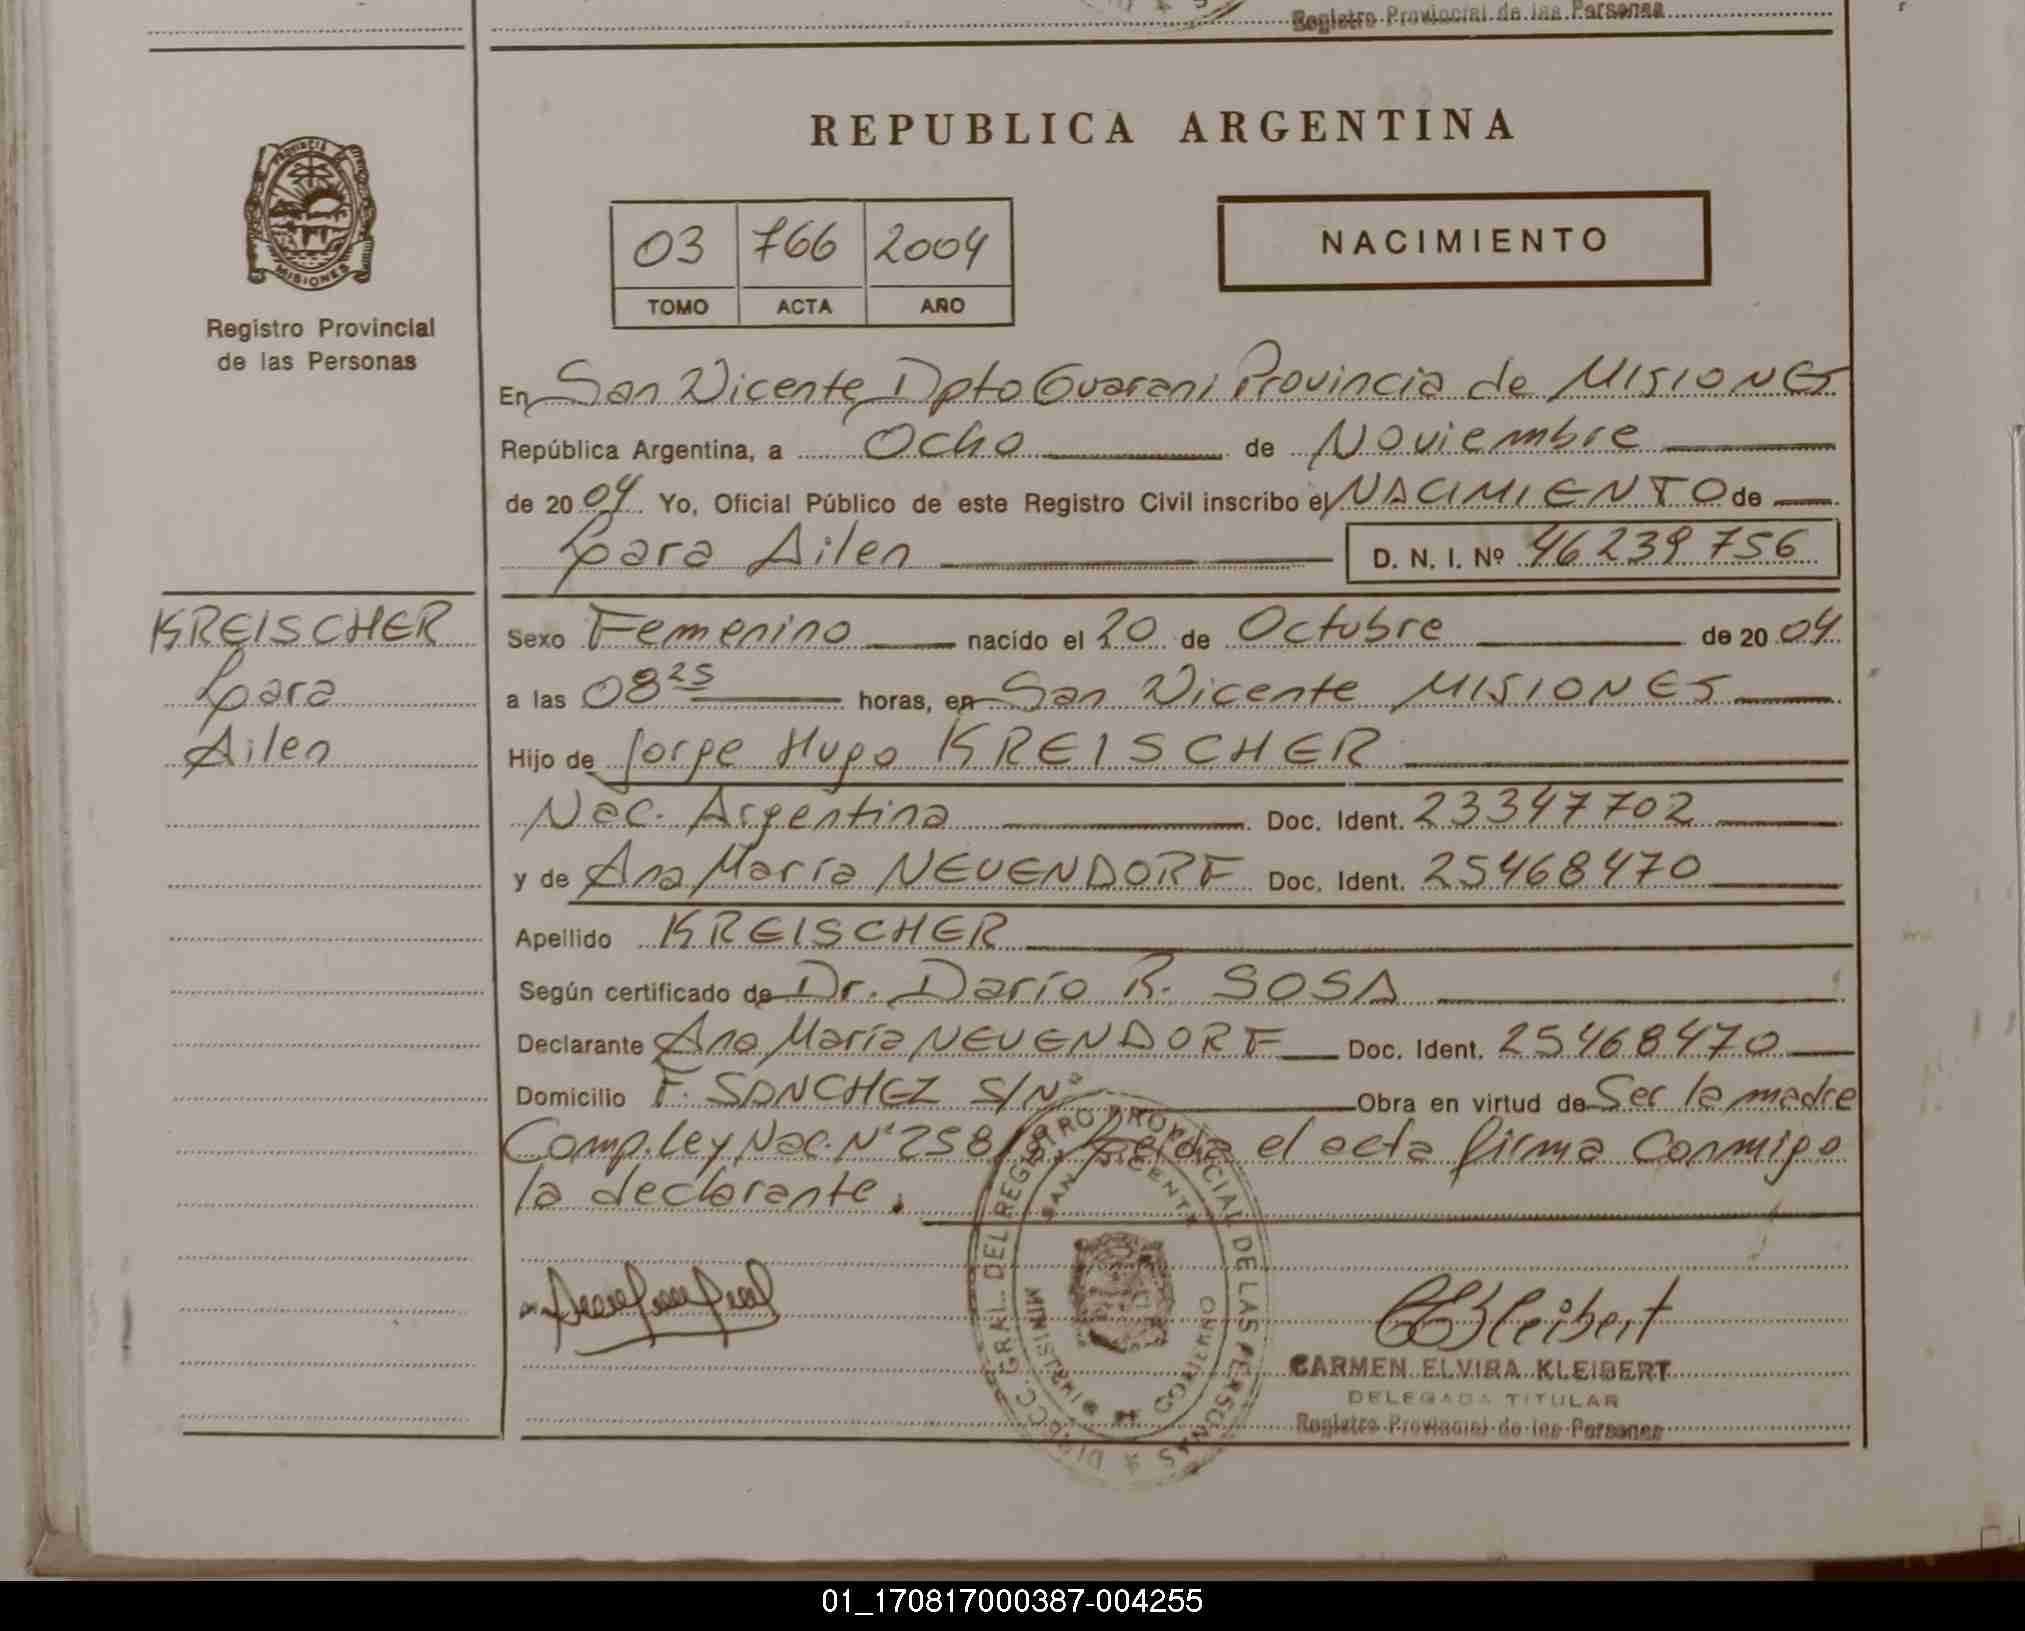 Registro Provincial de las Personas
REPUBLICA ARGENTINA
PROVINCIA DE
MISIONES
Registro Provincial
de las Personas
03 766 2004
TOMO ACTA AÑO
NACIMIENTO
En San Vicente Dpto Guarani Provincia de MISIONES
República Argentina, a Ocho de Noviembre
de 2004 Yo, Oficial Público de este Registro Civil inscribo el NACIMIENTO de
Lara Ailen D. N. I. Nº 46239756
KREISCHER
Lara
Ailen
Sexo Femenino nacido el 20 de Octubre de 2004
a las 08 25 horas, en San Vicente MISIONES
Hijo de Jorge Hugo KREISCHER
Nac. Argentina Doc. Ident. 23347702
y de Ana María NEUENDORF Doc. Ident. 25468470
Apellido KREISCHER
Según certificado de Dr. Darío R. SOSA
Declarante Ana María NEUENDORF Doc. Ident. 25468470
Domicilio F. SANCHEZ S/Nº Obra en virtud de Ser la madre
Comp. Ley Nac. Nº 25818. Leída el acta firma Conmigo
la declarante.
DIRECC. GRAL. DEL REGISTRO PROVINCIAL DE LAS PERSONAS
SAN VICENTE
MINISTERIO DE GOBIERNO
CEKleibert
CARMEN ELVIRA KLEIBERT
DELEGADA TITULAR
Registro Provincial de las Personas
01_170817000387-004255